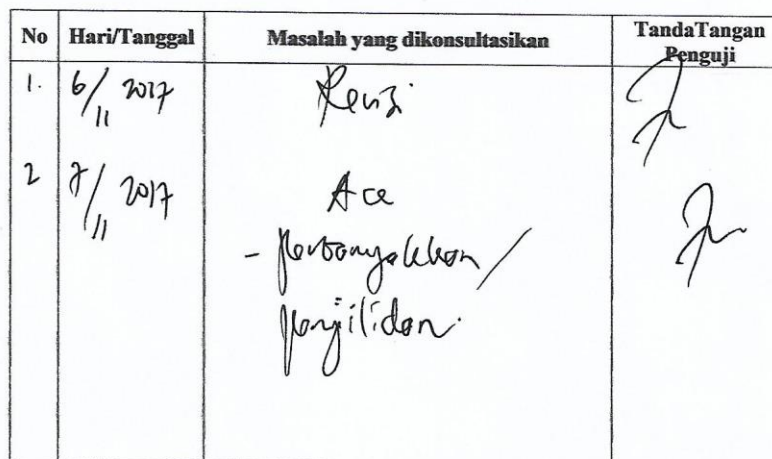 No Hari/Tanggal Masalah yang dikonsultasikan TandaTangan
Penguji
1. 6/11 2017 Revisi
2 7/11 2017 Acc
- perbanyakkan /
penjilidan.